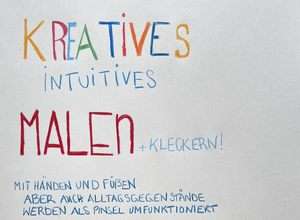 KREATIVES
INTUITIVES
MALEN + KLECKERN!
MIT HÄNDEN UND FÜßEN
ABER AUCH ALLTAGSGEGENSTÄNDE
WERDEN ALS PINSEL UMFUNKTIONIERT